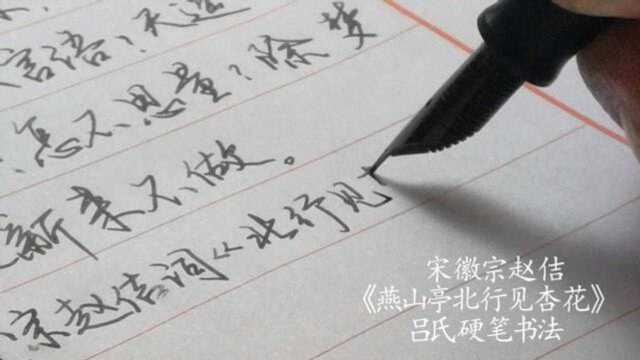 言语？天遥
怎不思量？除梦
新来不做。
宗赵佶词《北行见
宋徽宗赵佶
《燕山亭北行见杏花》
吕氏硬笔书法